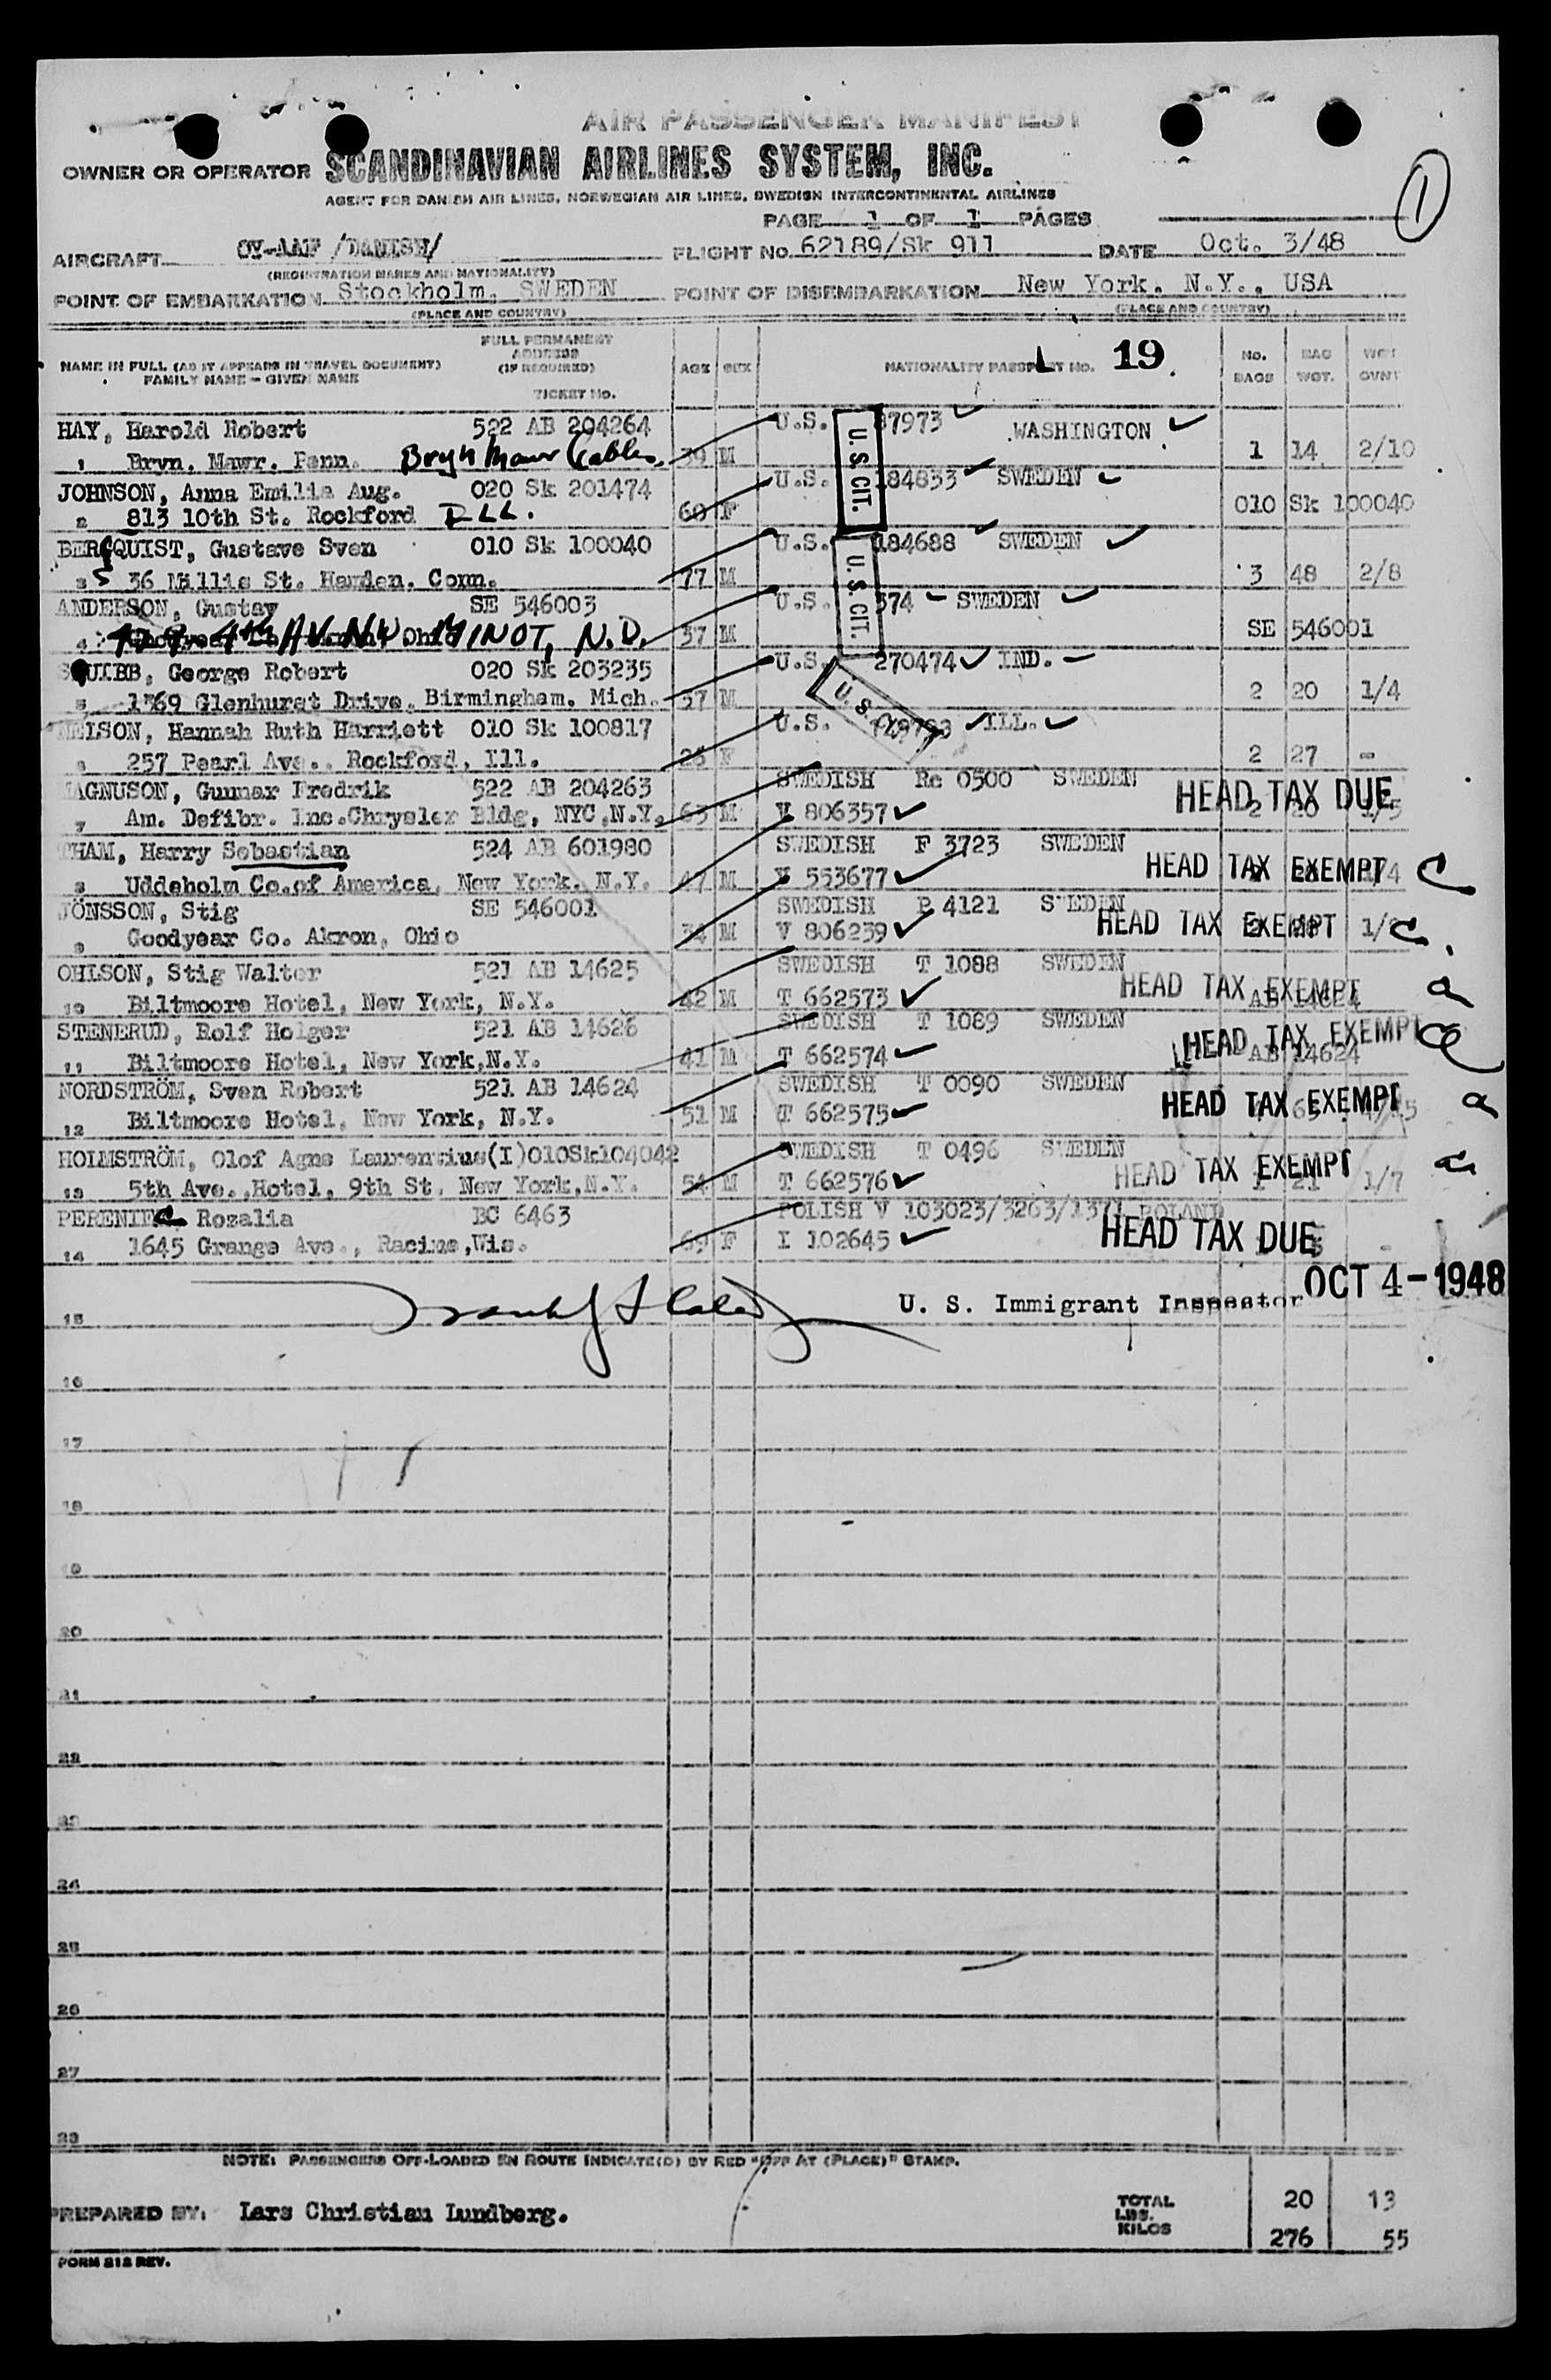 AIR PASSENGER MANIFEST
OWNER OR OPERATOR SCANDINAVIAN AIRLINES SYSTEM, INC.
AGENT FOR DANISH AIR LINES, NORWEGIAN AIR LINES, SWEDISH INTERCONTINENTAL AIRLINES
1
PAGE 1 OF 1 PAGES
AIRCRAFT OY-AAF /DANISH/ FLIGHT No. 62189/Sk 911 DATE Oct. 3/48
(REGISTRATION MARKS AND NATIONALITY)
POINT OF EMBARKATION Stockholm, SWEDEN POINT OF DISEMBARKATION New York, N.Y., USA
(PLACE AND COUNTRY) (PLACE AND COUNTRY)
NAME IN FULL (AS IT APPEARS IN TRAVEL DOCUMENT) FAMILY NAME - GIVEN NAME FULL PERMANENT ADDRESS (IF REQUIRED) TICKET No. AGE SEX NATIONALITY PASSPORT No. 19 No. BAGS BAG WGT. WGT OVWT
HAY, Harold Robert 522 AB 204264 U.S. 87973 WASHINGTON
1 Bryn. Mawr. Penn. Bryn Mawr Gables 39 M U.S. CIT. 1 14 2/10
JOHNSON, Anna Emilia Aug. 020 Sk 201474 U.S. 184833 SWEDEN
2 813 10th St. Rockford ILL. 60 F 010 Sk 100040
BERGQUIST, Gustave Sven 010 Sk 100040 U.S. 184688 SWEDEN
3 36 Millis St. Hamden. Conn. 77 M U.S. CIT. 3 48 2/8
ANDERSON, Gustav SE 546003 U.S. 574 SWEDEN
4 4th AV. NW MINOT, N.D. 37 M SE 546001
SQUIBB, George Robert 020 Sk 203235 U.S. 270474 IND.
5 1369 Glenhurst Drive, Birmingham, Mich. 57 M 2 20 1/4
NELSON, Hannah Ruth Harriett 010 Sk 100817 U.S. ILL.
6 257 Pearl Ave., Rockford, Ill. F U.S. CIT. 2 27 -
MAGNUSON, Gunnar Fredrik 522 AB 204263 SWEDISH Re 0500 SWEDEN HEAD TAX DUE
7 Am. Defibr. Inc. Chrysler Bldg, NYC, N.Y. 63 M V 806357 2 20 1/5
THAM, Harry Sebastian 524 AB 601980 SWEDISH F 3723 SWEDEN HEAD TAX EXEMPT C
8 Uddeholm Co. of America, New York. N.Y. 47 M V 553677
JÖNSSON, Stig SE 546001 SWEDISH P 4121 SWEDEN HEAD TAX EXEMPT C
9 Goodyear Co. Akron, Ohio 34 M V 806239
OHLSON, Stig Walter 521 AB 14625 SWEDISH T 1088 SWEDEN HEAD TAX EXEMPT a
10 Biltmoore Hotel, New York, N.Y. 42 M T 662573 AB 14624
STENERUD, Rolf Holger 521 AB 14626 SWEDISH T 1089 SWEDEN HEAD TAX EXEMPT a
11 Biltmoore Hotel, New York, N.Y. 41 M T 662574 AB 14624
NORDSTRÖM, Sven Robert 521 AB 14624 SWEDISH T 0090 SWEDEN HEAD TAX EXEMPT a
12 Biltmoore Hotel, New York, N.Y. 51 M T 662575
HOLMSTRÖM, Olof Agne Laurentius(I) 010Sk104042 SWEDISH T 0496 SWEDEN HEAD TAX EXEMPT a
13 5th Ave., Hotel, 9th St. New York, N.Y. 54 M T 662576 21 1/7
PERENIEC Rozalia BC 6463 POLISH V 103023/3263/1371 POLAND HEAD TAX DUE
14 1645 Grange Ave., Racine, Wis. 69 F I 102645 -
OCT 4 - 1948
15 U. S. Immigrant Inspector
16
17
18
19
20
21
22
23
24
25
26
27
28
NOTE: PASSENGERS OFF-LOADED EN ROUTE INDICATE(D) BY RED "OFF AT (PLACE)" STAMP.
PREPARED BY: Lars Christian Lundberg. TOTAL LBS. KILOS 20 13
276 55
FORM 212 REV.